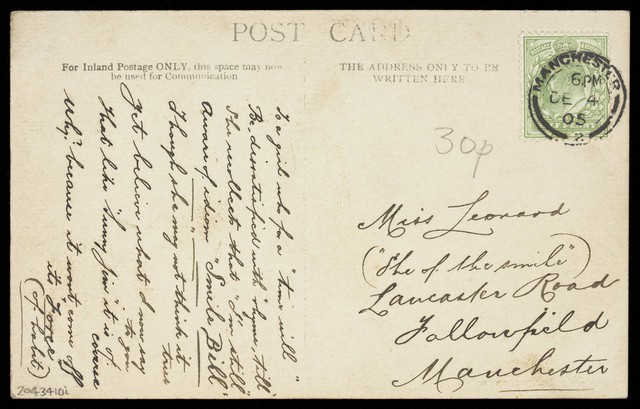 POST CARD
For Inland Postage ONLY, this space may now
be used for Communication
THE ADDRESS ONLY TO BE
WRITTEN HERE
MANCHESTER
6 PM
DE 4
05
30p
To a girl who for a "time will"
Be dissatisfied with
I'll recollect that "I'm still"
Aware of idiom "Smile Bill"
Though she may not think it true
Yet believe what I now say to you
That like "Sunny Jim" it is of course
Why? because it won't come off
its Force
(of habit)
Miss Leonard
("She of the smile")
Lancaster Road
Fallowfield
Manchester
2043410i